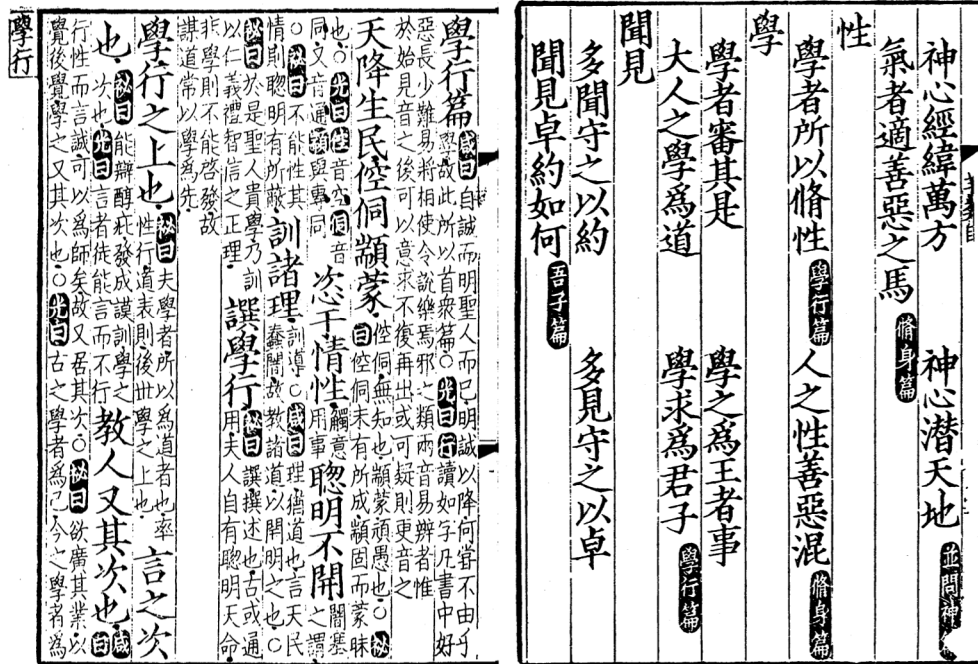 神心經緯萬方　神心潛天地　並問神篇
氣者適善惡之馬　脩身篇
性
學者所以脩性　學行篇　人之性善惡混　脩身篇
學
學者審其是　學之爲王者事
大人之學爲道　學求爲君子　學行篇
聞見
多聞守之以約　多見守之以卓
聞見卓約如何　吾子篇
學行篇　咸曰自誠而明聖人而已明誠以降何嘗不由乎學故此所以首衆篇○光曰行讀如字凡書中好
惡長少難易將相使令說樂焉邪之類兩音易辨者惟於始見音之後可以意求不復再出或可疑則更音之
天降生民倥侗顓蒙　倥侗無知也顓蒙頑愚也○祕曰倥侗未有所成顓固而蒙昧
也○光曰倥音空侗音同又音通顓與專同　恣于情性　觸意用事　聰明不開　闇塞之謂
○祕曰不能性其情則聰明有所蔽　訓諸理　訓導○咸曰理猶道也言天民蠢闇故教諸道以開明之也○
祕曰於是聖人貴學乃訓以仁義禮智信之正理　譔學行　祕曰譔撰述也古或通用夫人自有聰明天命
非學則不能啓發故謨道常以學爲先
學行之上也　祕曰夫學者所以爲道者也率性行道表則後世學之上也　言之次
也　祕曰能辯醇疵發成謨訓學之次也○光曰言者徒能言而不行　教人又其次也　咸曰
行性而言誠可以爲師矣故又居其次○祕曰欲廣其業以覺後覺學之又其次也○光曰古之學者爲己今之學者爲
學行